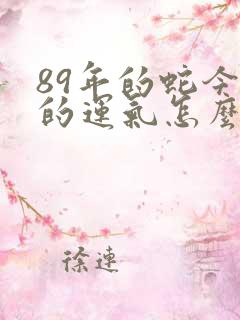 89年的蛇今
的運氣怎麼
徐連